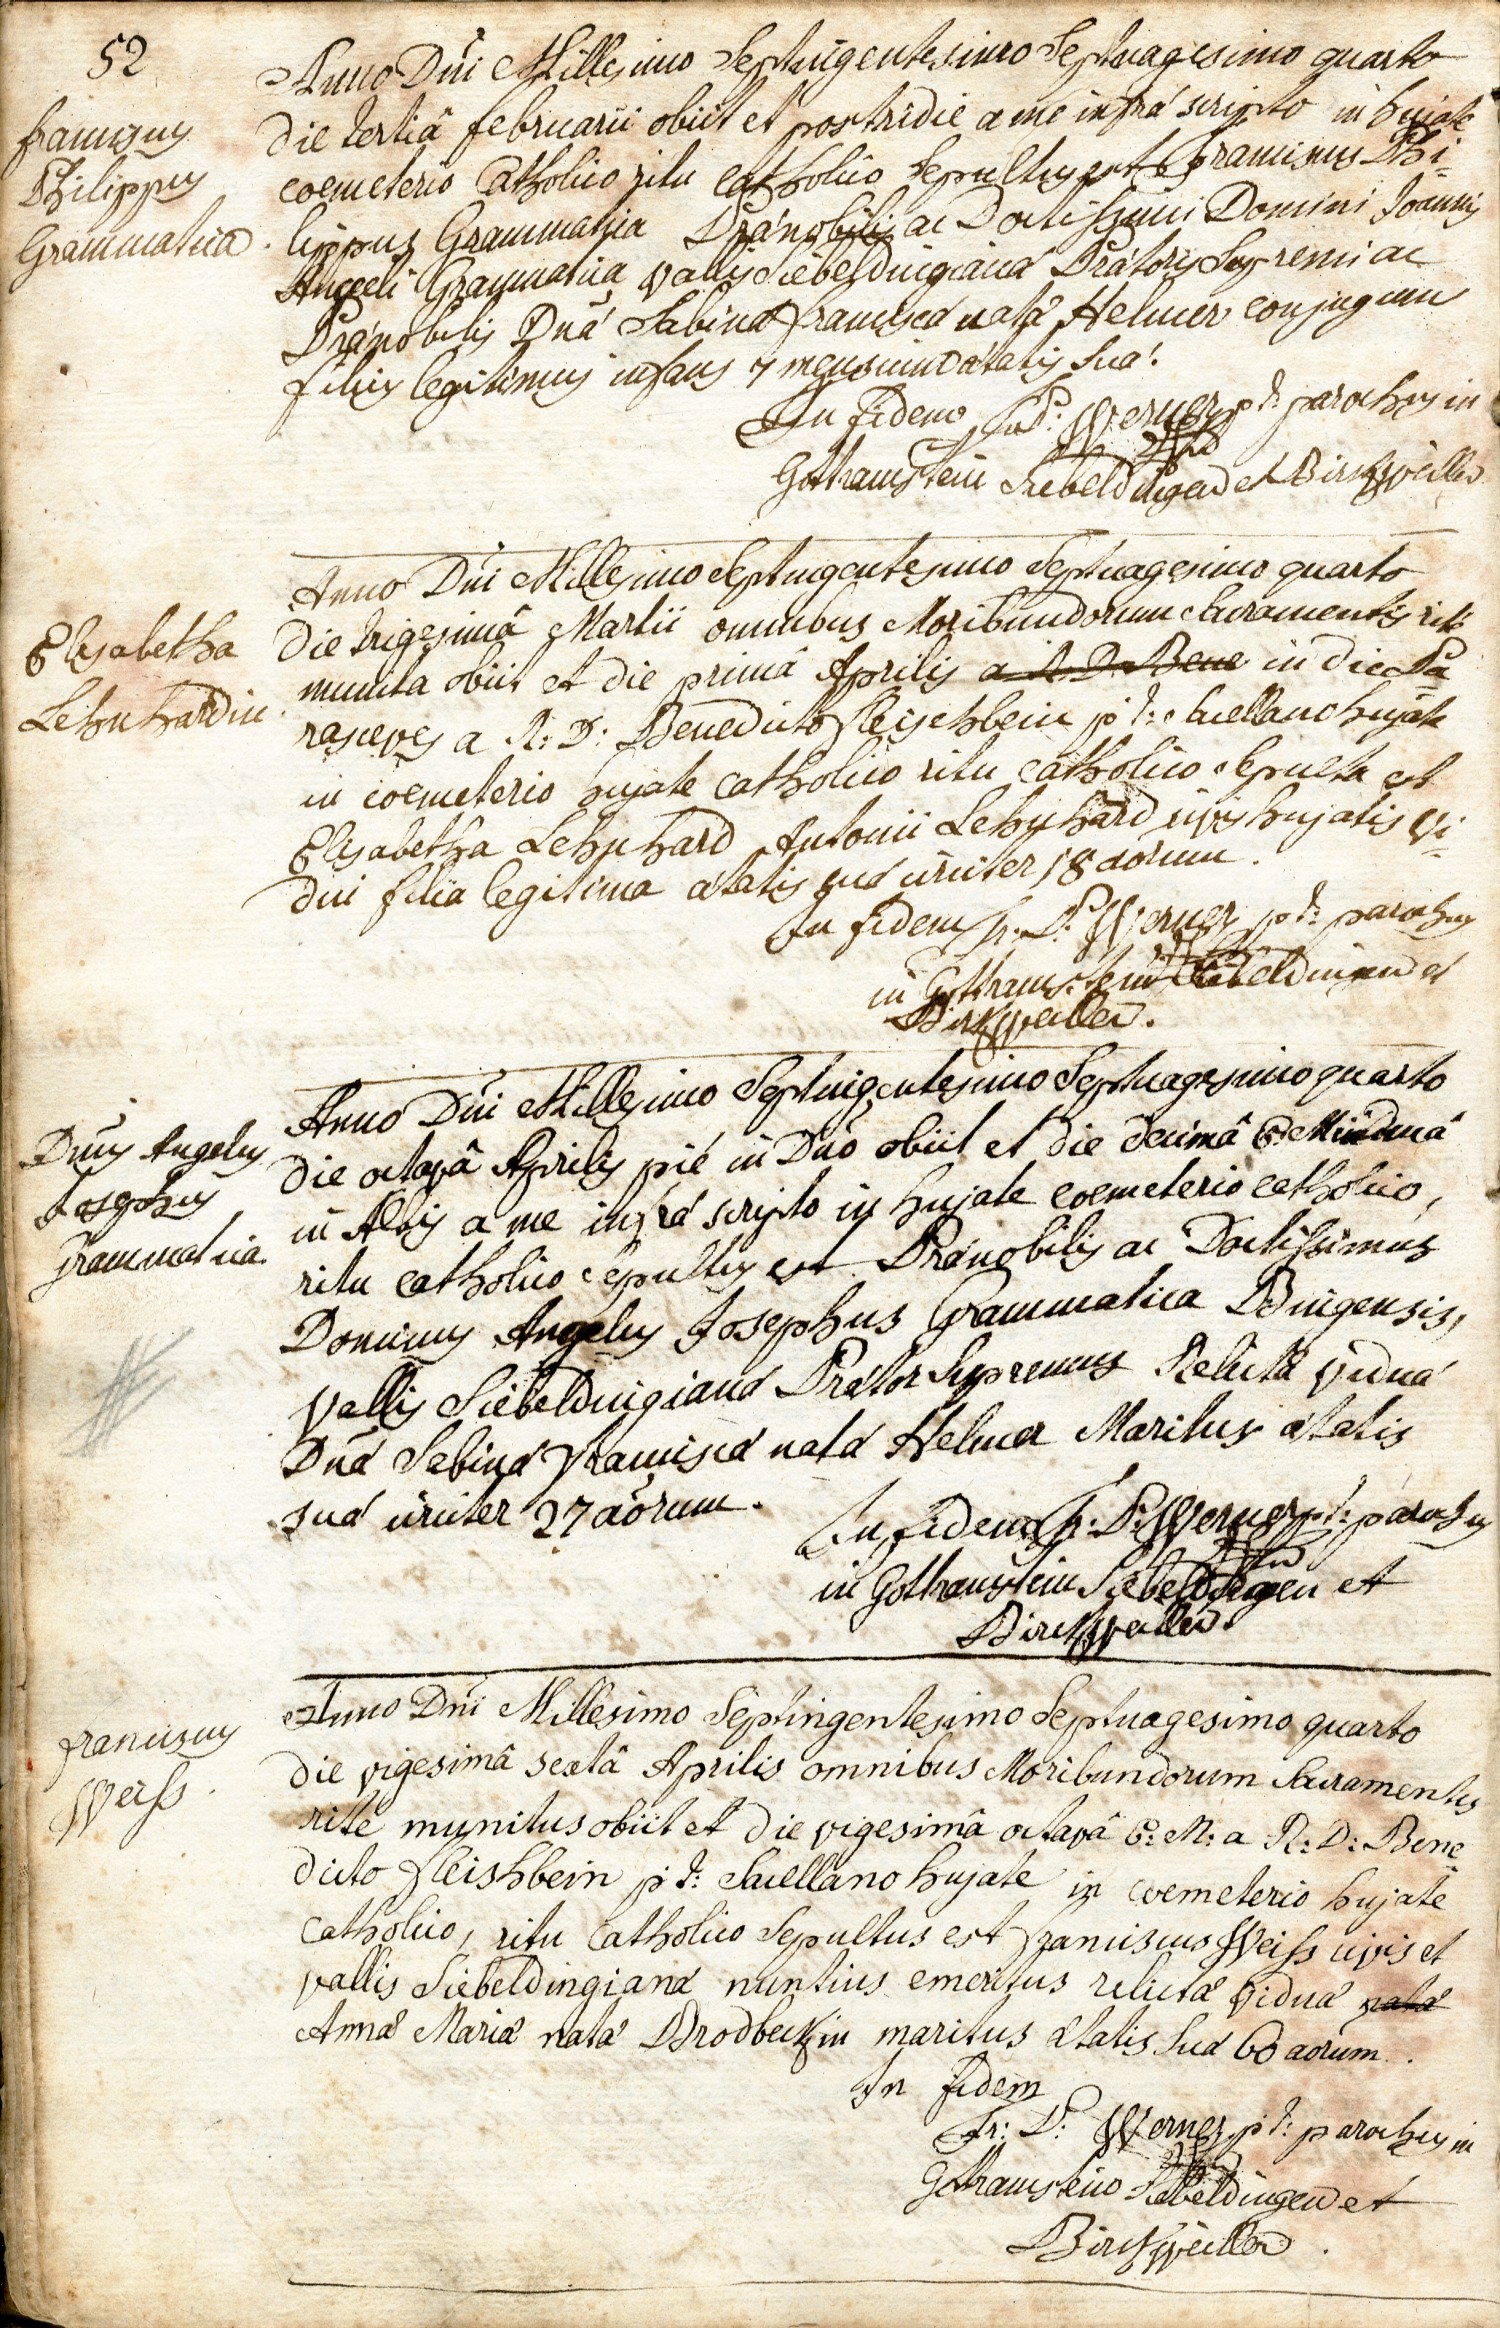 52
Anno Dni Millesimo Septingentesimo Septuagesimo quarto
die tertiâ februarii obiit et postridie a me infrá scripto in hujate
franciscus
Philippus
Grammatica.
coemeterio Catholico ritu catholico Sepultus est Franciscus Phi-
lippus Grammatica Prænobilis ac Doctissimi Domini Joannis
Angeli Grammatica vallis Siebeldingianæ Prætoris Supremi ac
Prænobilis Dnæ Sabinæ Franciscæ natæ Helmer conjugum
filius legitimus infans 7 mensium ætatis suæ.
In fidem Fr: P: Werner p t: parochus in
Gothramstein Siebeldingen et Birckweiller
Anno Dni Millesimo Septingentesimo Septuagesimo quarto
Elisabetha
Lehnhardin.
die trigesimâ Martii omnibus Moribundorum Sacramentis rite
munita obiit et die primâ Aprilis a R. D. Bene in die Pa-
rasceves a R: D: Benedicto Fleischbein p t: Sacellano hujate
in coemeterio hujate catholico ritu catholico sepulta est
Elisabetha Lehnhard Antonii Lehnhard civis hujatis vi-
dui filia legitima ætatis suæ circiter 18 aorum.
In fidem Fr. P: Werner p t: parochus
in Gothramstein Siebeldingen et
Birckweiller.
Anno Dni Millesimo Septingentesimo Septuagesimo quarto
Dnus Angelus
Josephus
Grammatica.
die octavâ Aprilis pié in Dno obiit et die decimâ
in Albis a me infrá scripto in hujate coemeterio catholico,
ritu catholico sepultus est Prænobilis ac Doctissimus
Dominus Angelus Josephus Grammatica Bingensis,
vallis Siebeldingianæ Prætor Supremus Relictæ viduæ
Dnæ Sabinæ Franciscæ natæ Helmer Maritus ætatis
suæ circiter 27 aorum.
In fidem Fr: P: Werner p t: parochus
in Gothramstein Siebeldingen et
Birckweiller.
Anno Dni Millesimo Septingentesimo Septuagesimo quarto
franciscus
Weiss.
die vigesimâ sextâ Aprilis omnibus Moribundorum Sacramentis
rité munitus obiit et die vigesimâ octavâ E: M: a R: D: Bene-
dicto Fleishbein p t: Sacellano hujate in coemeterio hujate
Catholico, ritu Catholico Sepultus est Franciscus Weiss civis et
vallis Siebeldingianæ nuntius emeritus relictæ viduæ natæ
Annæ Mariæ natæ Brodbeckin maritus ætatis suæ 60 aorum.
In fidem
Fr: P: Werner p t: parochus in
Gothramstein Siebeldingen et
Birckweiller.